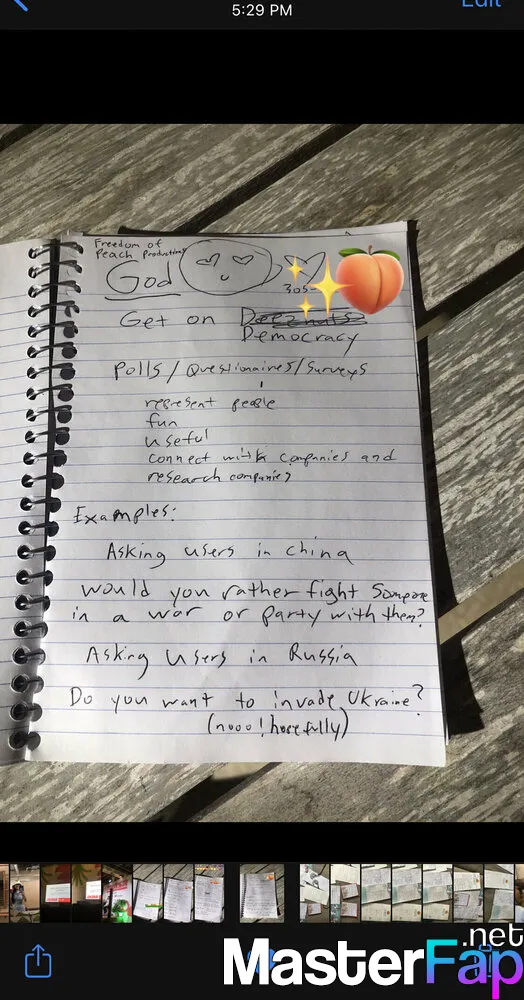 5:29 PM
Edit
Freedom of
Peach Productions
God
305-
Get on Deeznuts
Democracy
Polls / Questionaires / Surveys
represent people
fun
useful
connect with companies and
research companies
Examples:
Asking users in china
would you rather fight someone
in a war or party with them?
Asking Users in Russia
Do you want to invade Ukraine?
(nooo! hopefully)
.net
MasterFap